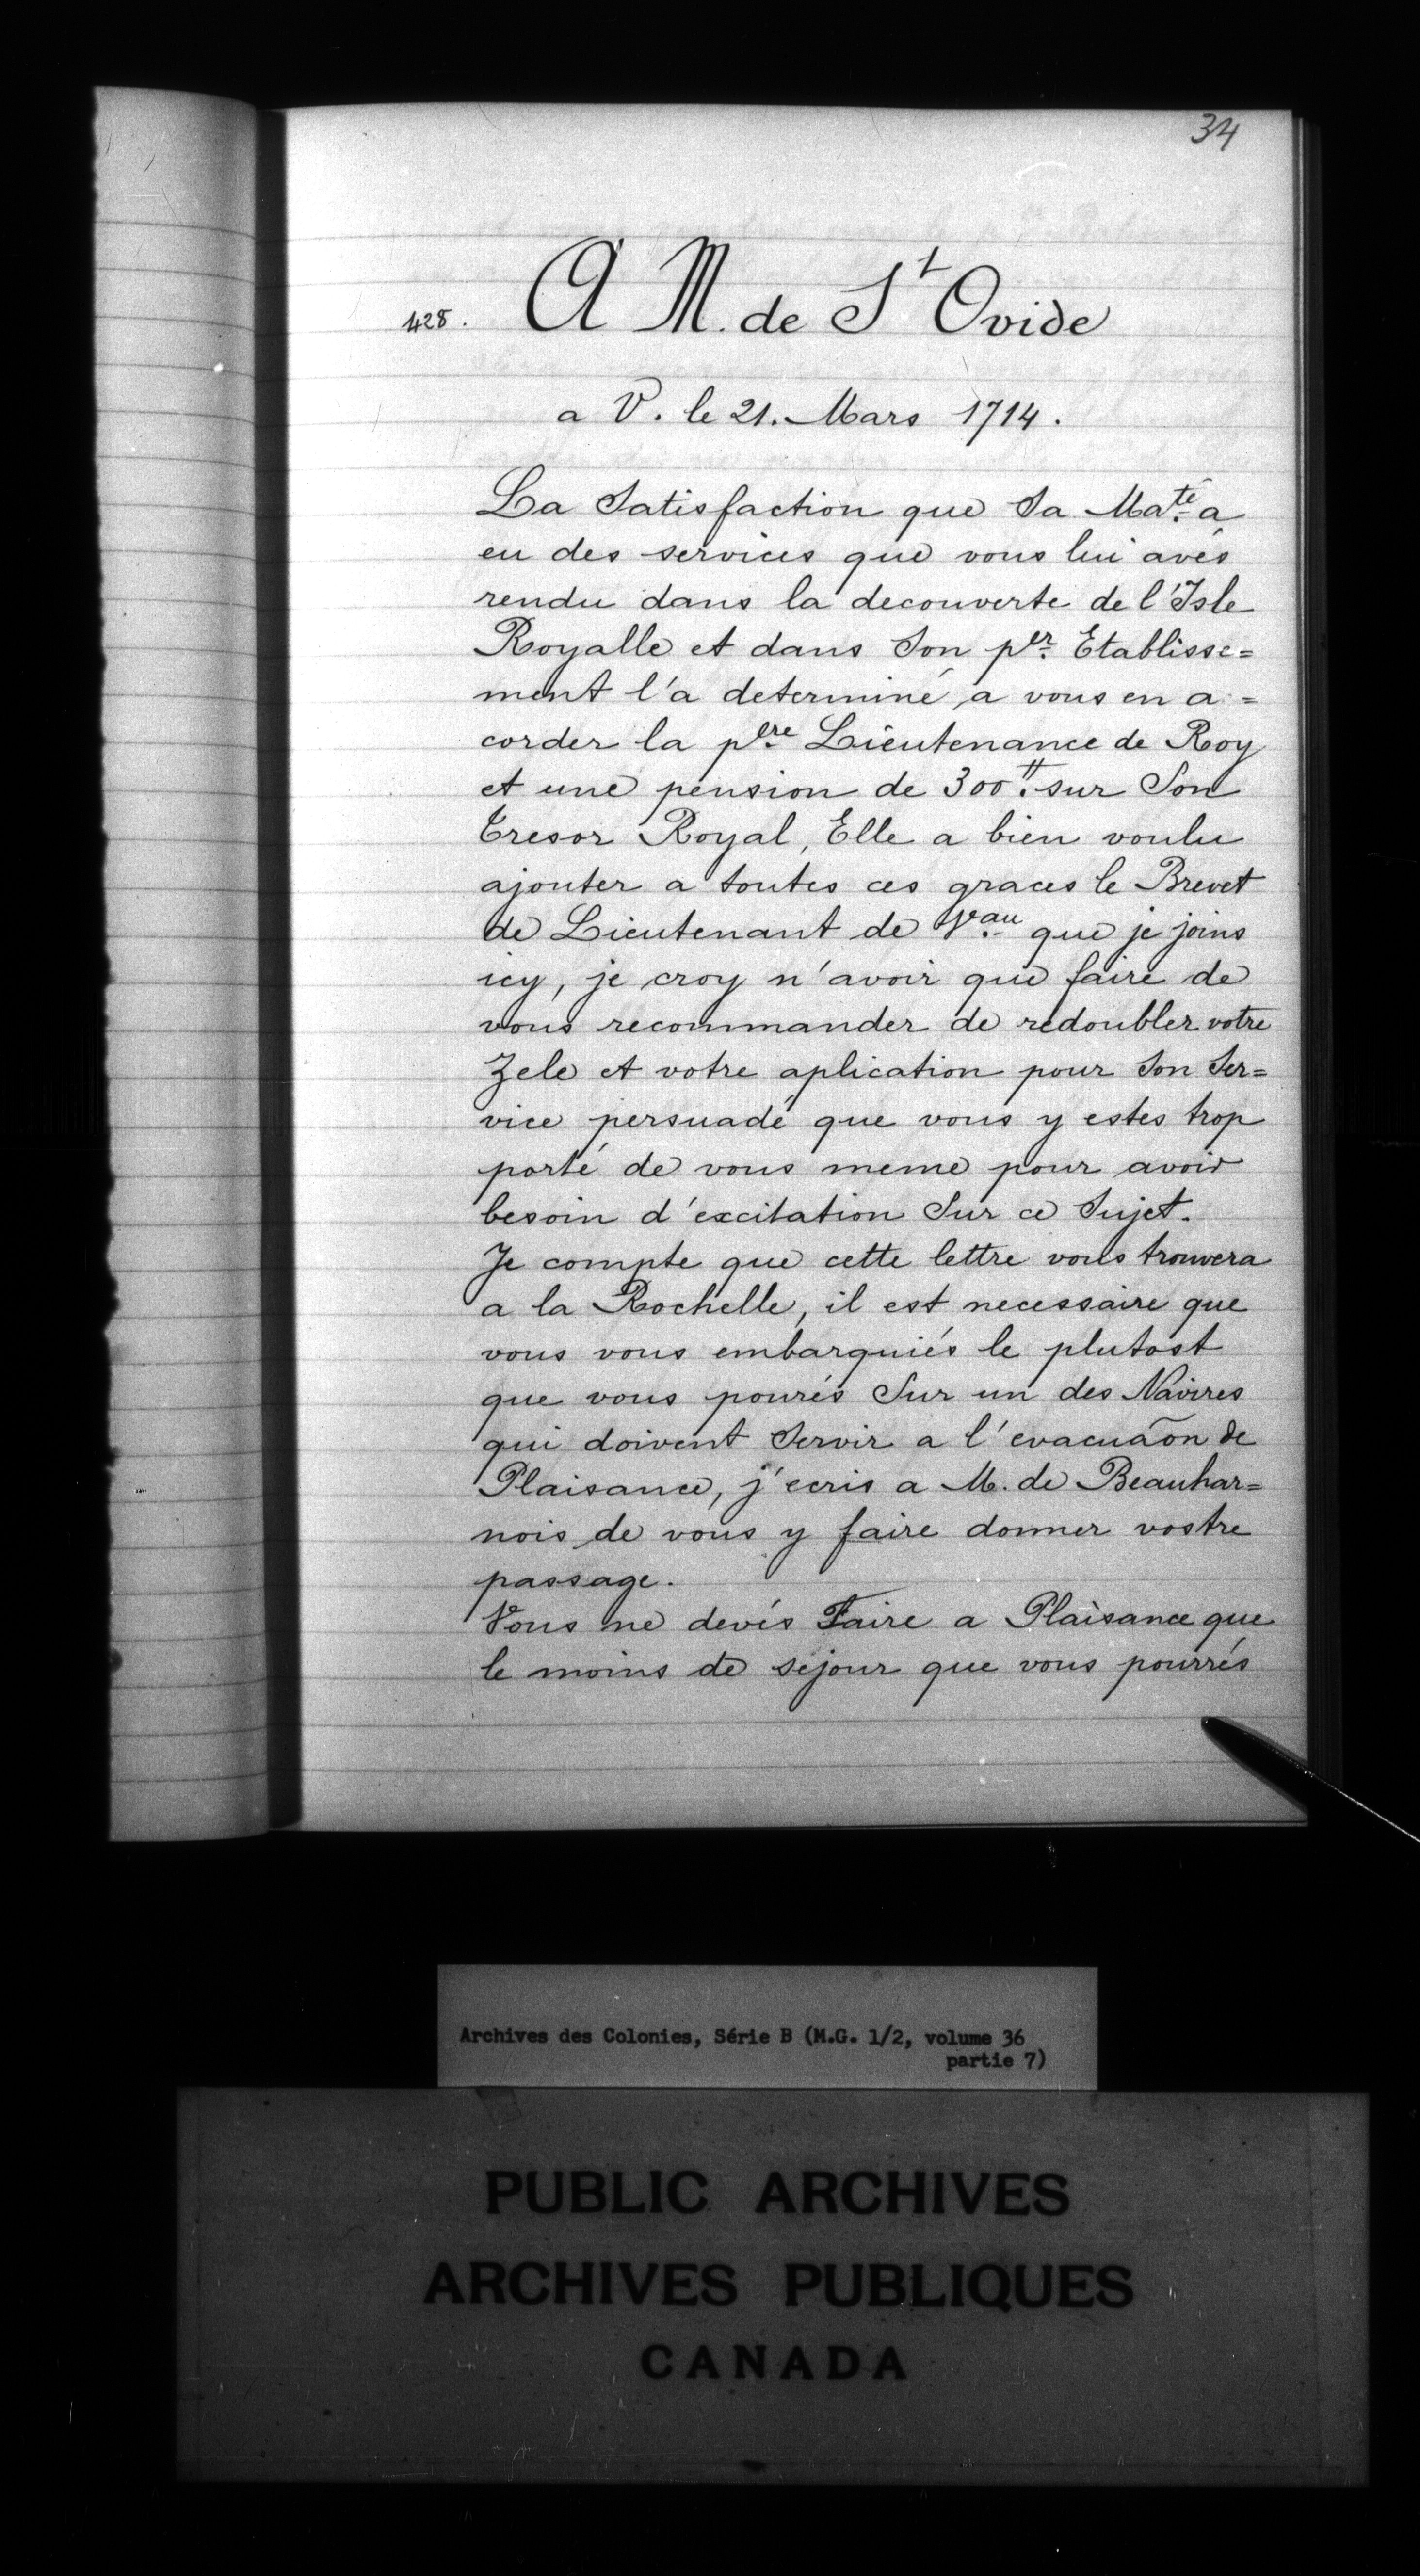 34
428. A M. de St Ovide
a V. le 21. Mars 1714.
La Satisfaction que Sa Ma.té a
eu des services que vous lui avés
rendu dans la decouverte de l'Isle
Royalle et dans Son p.er Etablisse=
ment l'a determiné a vous en a=
corder la p.ere Lieutenance de Roy
et une pension de 300.tt sur Son
Tresor Royal, Elle a bien voulu
ajouter a toutes ces graces le Brevet
de Lieutenant de V.au que je joins
icy, je croy n'avoir que faire de
vous recommander de redoubler votre
Zele et votre aplication pour Son Ser=
vice persuadé que vous y estes trop
porté de vous meme pour avoir
besoin d'excitation Sur ce Sujet.
Je compte que cette lettre vous trouvera
a la Rochelle, il est necessaire que
vous vous embarquiés le plutost
que vous pourés Sur un des Navires
qui doivent Servir a l'evacuaõn de
Plaisance, j'ecris a M. de Beauhar=
nois de vous y faire donner vostre
passage.
Vous ne devés Faire a Plaisance que
le moins de sejour que vous pourrés
Archives des Colonies, Série B (M.G. 1/2, volume 36
partie 7)
PUBLIC ARCHIVES
ARCHIVES PUBLIQUES
CANADA